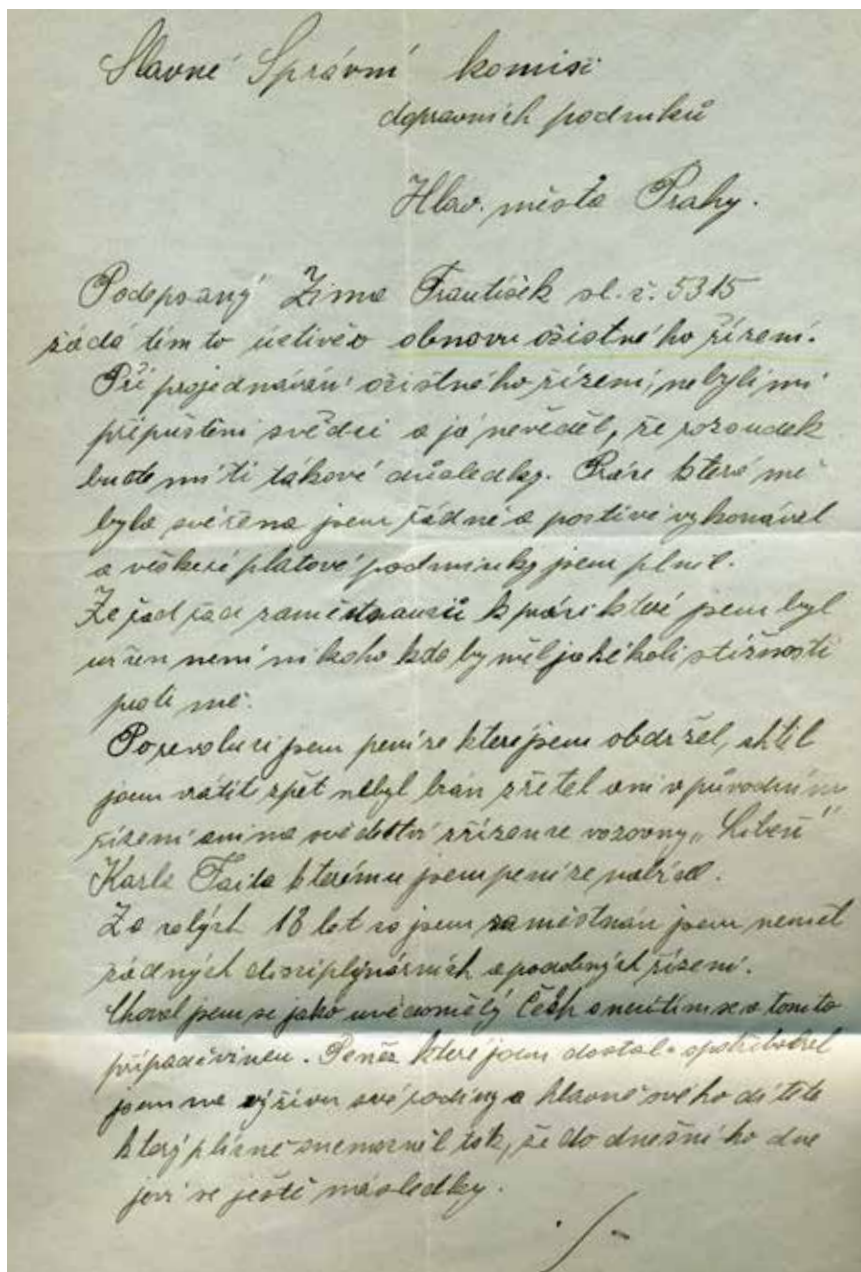 Slavné Správní komisi
dopravních podniků
Hlav. města Prahy.
Podepsaný Zima František sl. č. 5315
žádá tímto uctivě o obnovu očistného řízení.
Při projednávání očistného řízení, nebyli mi
připuštěni svědci a já nevěděl, že rozsudek
bude míti takové důsledky. Práce které mě
byla svěřena jsem řádně a poctivě vykonával
a veškeré platové podmínky jsem plnil.
Ze řad zaměstnanců k práci které jsem byl
určen není nikoho kdo by měl jakékoli stížnosti
proti mě.
Po revoluci jsem peníze které jsem obdržel, chtěl
jsem vrátiti zpět nebyl brán zřetel ani v původním
řízení ani na svědectví zřízence vozovny „Libeň"
Karla Fajta kterému jsem peníze nabízel.
Za celých 18 let co jsem zaměstnán jsem neměl
žádných disciplinárních a podobných řízení.
Choval jsem se jako uvědomělý Čech a necítím se v tomto
případě vinen. Peněz které jsem dostal spotřeboval
jsem na výživu své rodiny a hlavně svého dítěte
který plícně onemocněl tak, že do dnešního dne
jeví se ještě následky.
./-